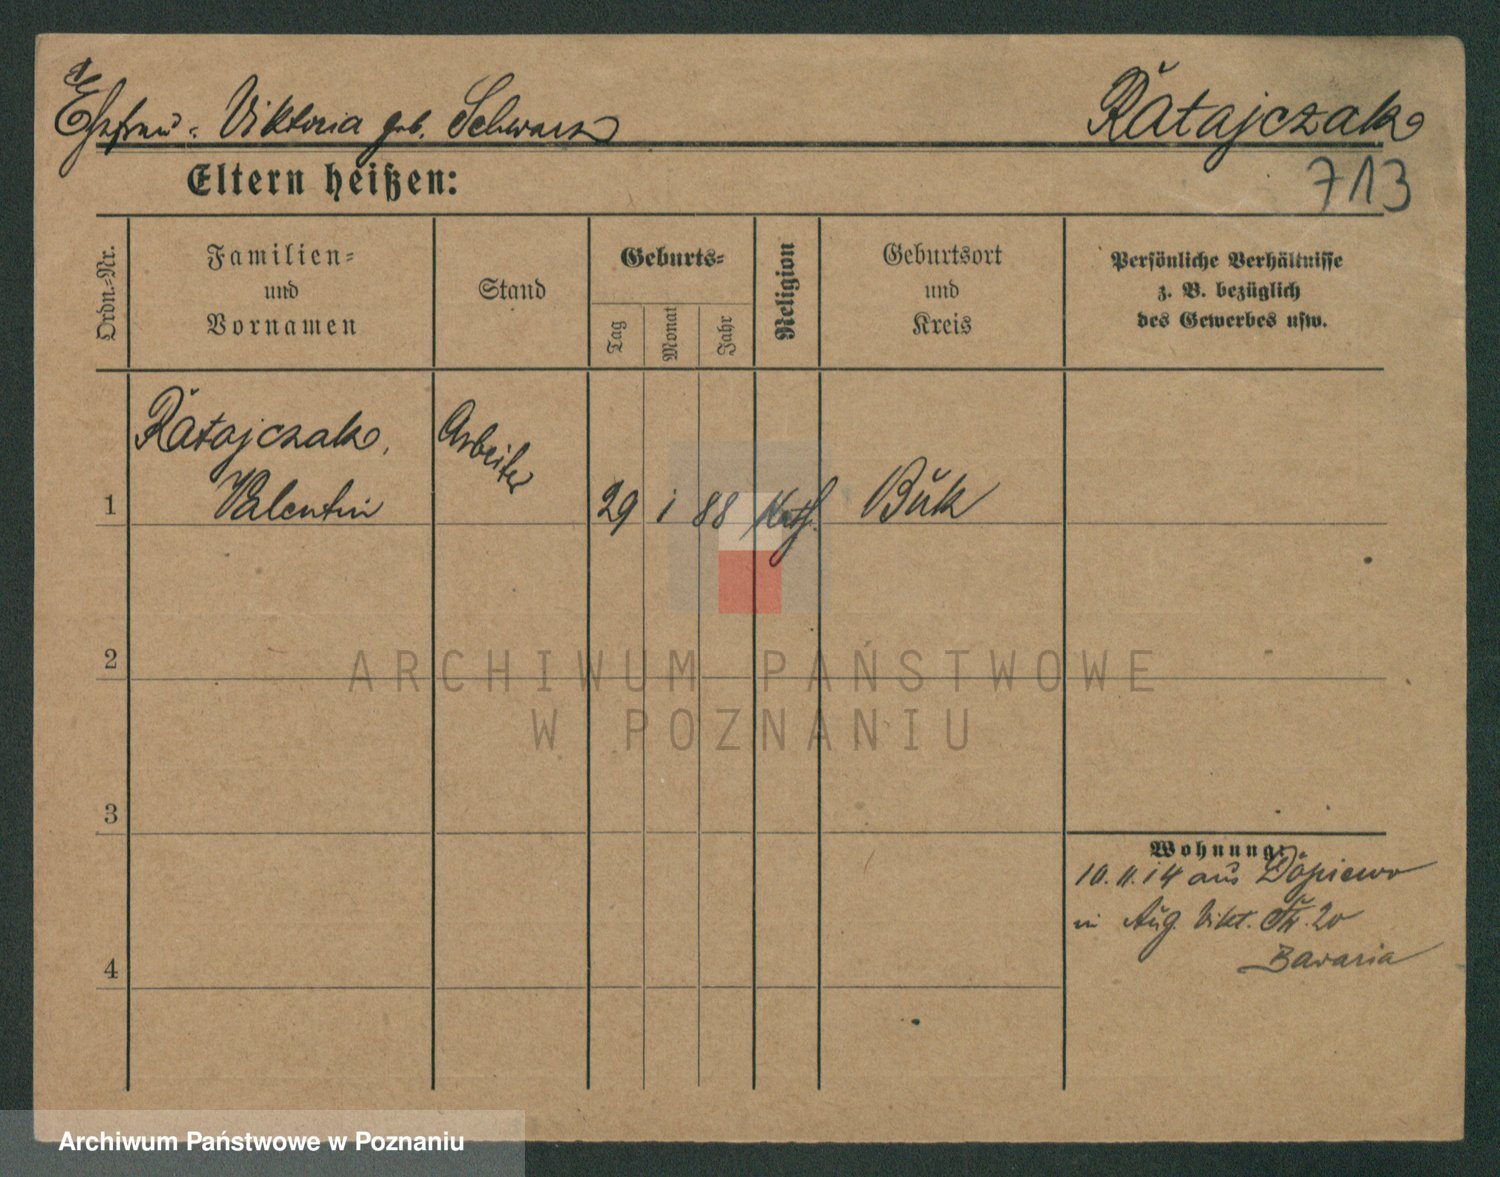 Ehefrau: Viktoria geb. Schwarz
Ratajczak
713
Eltern heißen:
Ordn.-Nr.
Familien-
und
Vornamen
Stand
Geburts-
Tag
Monat
Jahr
Religion
Geburtsort
und
Kreis
Persönliche Verhältnisse
z. B. bezüglich
des Gewerbes usw.
Ratajczak,
Valentin
Arbeiter
1
29 1 88 kath.
Buk
2
ARCHIWUM PAŃSTWOWE
W POZNANIU
3
Wohnung:
10.11.14 aus Dopiewo
in Aug. Vikt. Str. 20
Bavaria
4
Archiwum Państwowe w Poznaniu